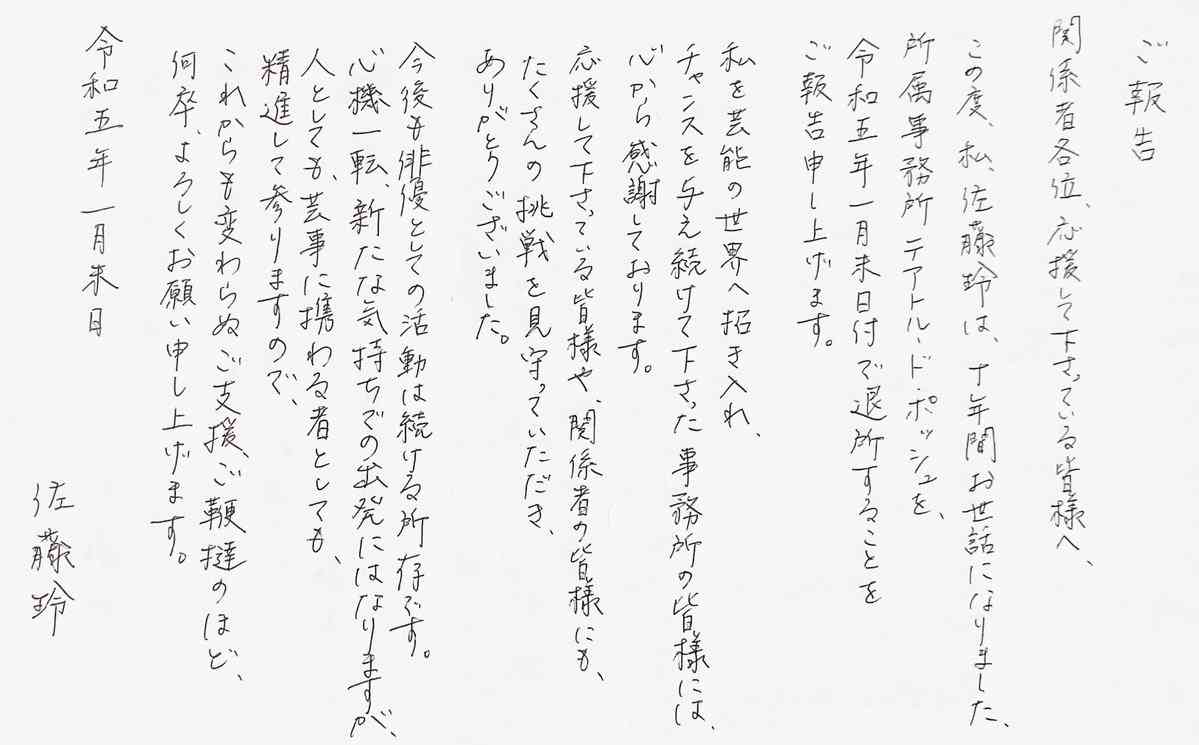 ご報告
関係者各位、応援して下さっている皆様へ、
この度、私、佐藤玲は、十年間お世話になりました、
所属事務所テアトル・ド・ポッシュを、
令和五年一月末日付で退所することを
ご報告申し上げます。
私を芸能の世界へ招き入れ、
チャンスを与え続けて下さった事務所の皆様には、
心から感謝しております。
応援して下さっている皆様や、関係者の皆様にも、
たくさんの挑戦を見守っていただき、
ありがとうございました。
今後も俳優としての活動は続ける所存です。
心機一転、新たな気持ちでの出発にはなりますが、
人としても、芸事に携わる者としても、
精進して参りますので、
これからも変わらぬご支援、ご鞭撻のほど、
何卒、よろしくお願い申し上げます。
令和五年一月末日
佐藤玲